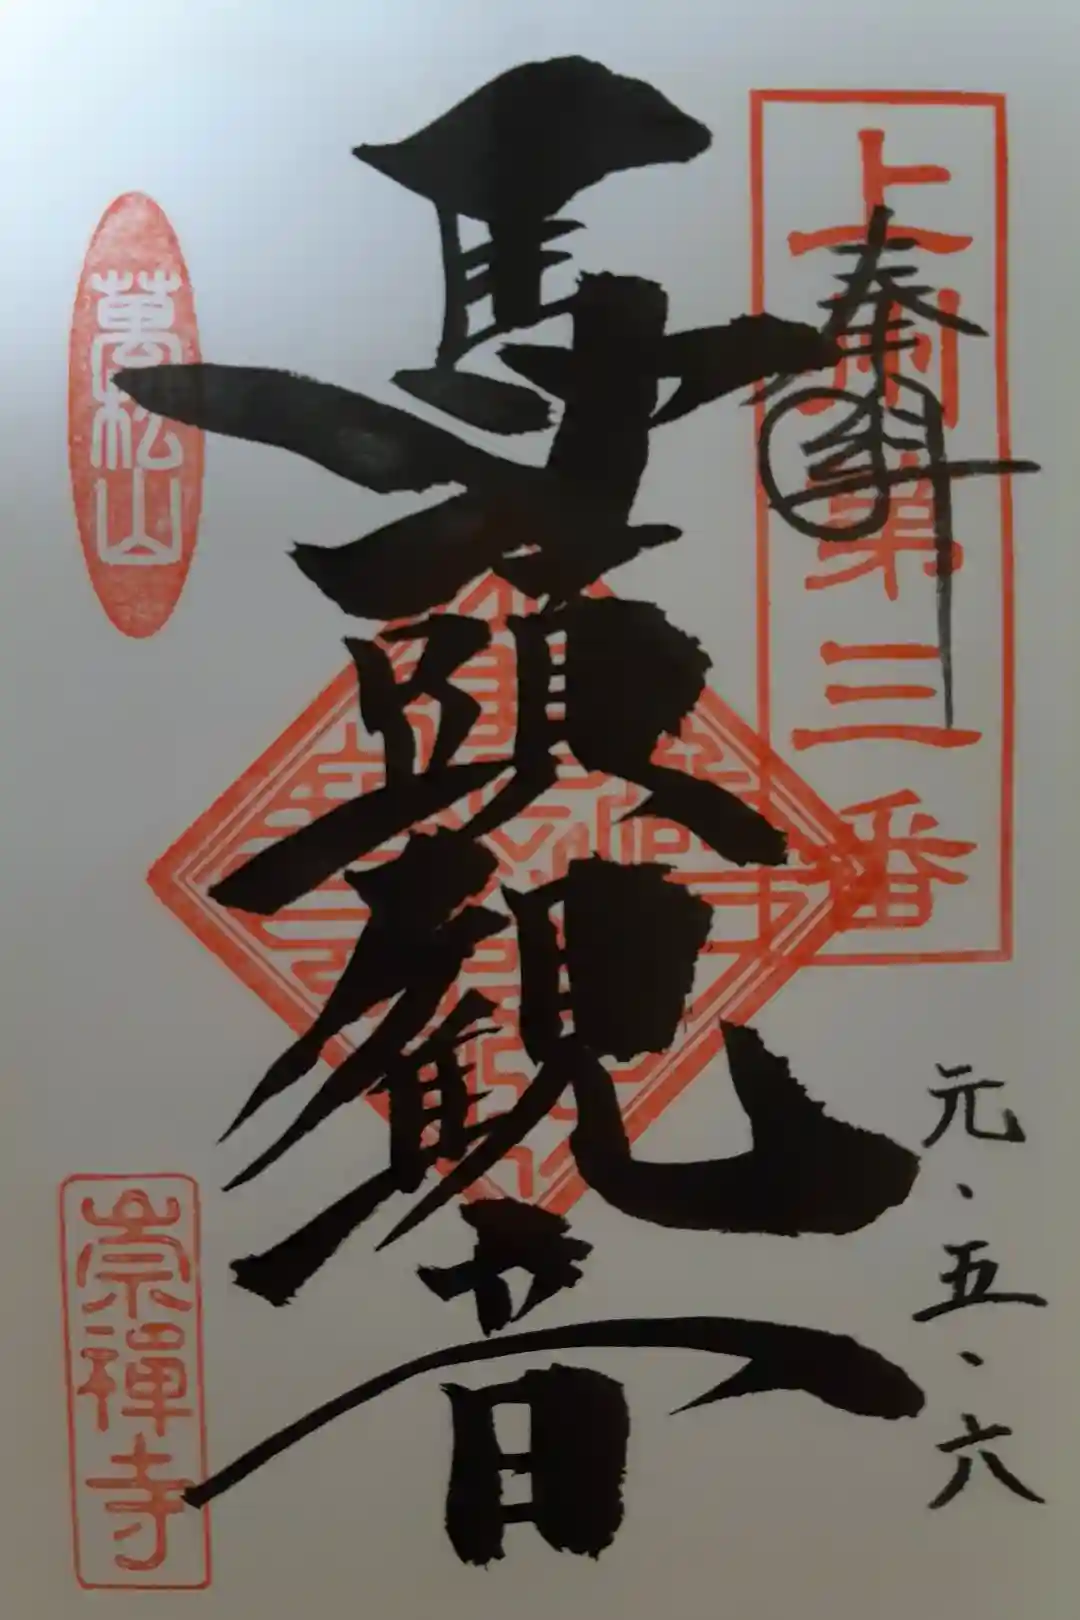 上州第三番
奉拝
元・五・六
馬頭観音
萬松山
崇禅寺